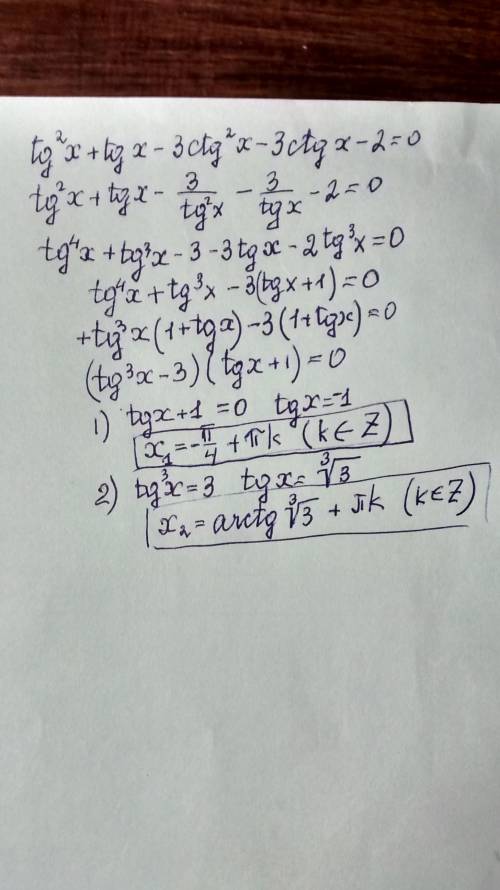 tg²x + tg x - 3ctg²x - 3ctg x - 2 = 0
tg²x + tg x - 3/tg²x - 3/tg x - 2 = 0
tg⁴x + tg³x - 3 - 3tg x - 2tg³x = 0
tg⁴x + tg³x - 3(tg x + 1) = 0
+tg³x(1 + tg x) - 3(1 + tg x) = 0
(tg³x - 3)(tg x + 1) = 0
1) tg x + 1 = 0 tg x = -1
x₁ = -π/4 + πk (k ∈ Z)
2) tg³x = 3 tg x = ∛3
x₂ = arctg ∛3 + πk (k ∈ Z)